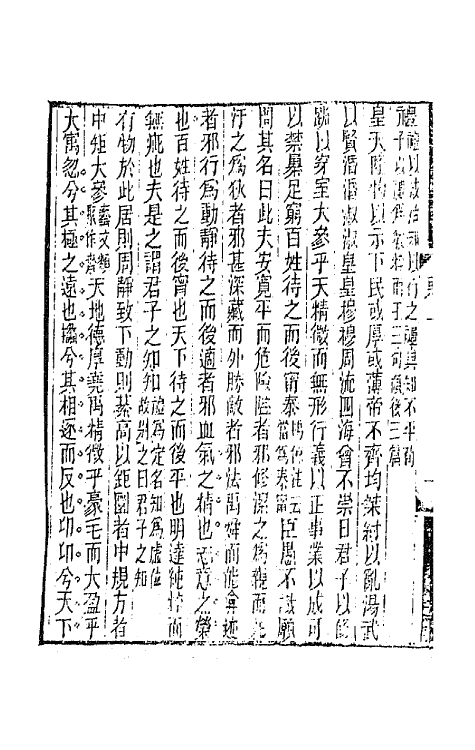 皇天隆物以示下民或厚或薄帝不齊均桀紂以亂湯武
以賢湣湣淑淑皇皇穆穆周流四海曾不崇日君子以脩
跖以穿室大參乎天精微而無形行義以正事業以成可
以禁暴足窮百姓待之而後甯泰當爲泰甯臣愚不識願
問其名曰此夫安寬平而危險隘者邪修潔之爲親而
汙之爲狄者邪甚深藏而外勝敵者邪法禹舜而能弇迹
者邪行爲動靜待之而後適者邪血氣之精也志意之榮
也百姓待之而後甯也天下待之而後平也明達純粹而
無疵也夫是之謂君子之知知爲定名知爲虛位故別之曰君子之知
有物於此居則周靜致下動則綦高以鉅圓者中規方者
中矩大參藝文類聚作齊天地德厚堯禹精微乎豪毛而大盈乎
大寓忽兮其極之遠也攭兮其相逐而反也卬卬兮天下